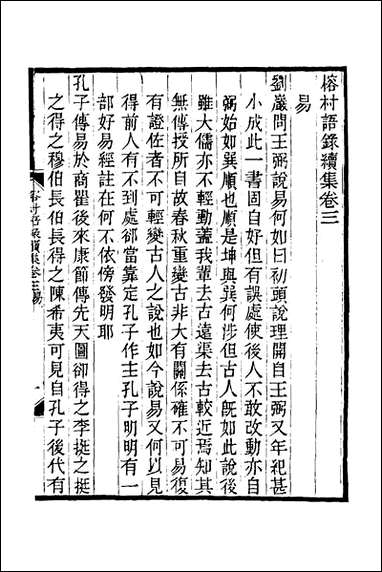 榕村語錄續集卷三
易
劉巖問王弼說易何如曰初頭說理開自王弼又年紀甚
小成此一書固自好但有誤處使後人不敢改動亦自
弼始如巽順也順是坤與巽何涉但古人既如此說後
雖大儒亦不輕動蓋我輩去古遠渠去古較近焉知其
無傳授所自故春秋重變古非大有關係確不可易復
有證佐者不可輕變古人之說也如今說易又何以見
得前人有不到處卻當靠定孔子作主孔子明明有一
部好易經註在何不依傍發明耶
孔子傳易於商瞿後來康節傳先天圖卻得之李挺之挺
之得之穆伯長伯長得之陳希夷可見自孔子後代有
榕村語錄續集卷三易
一